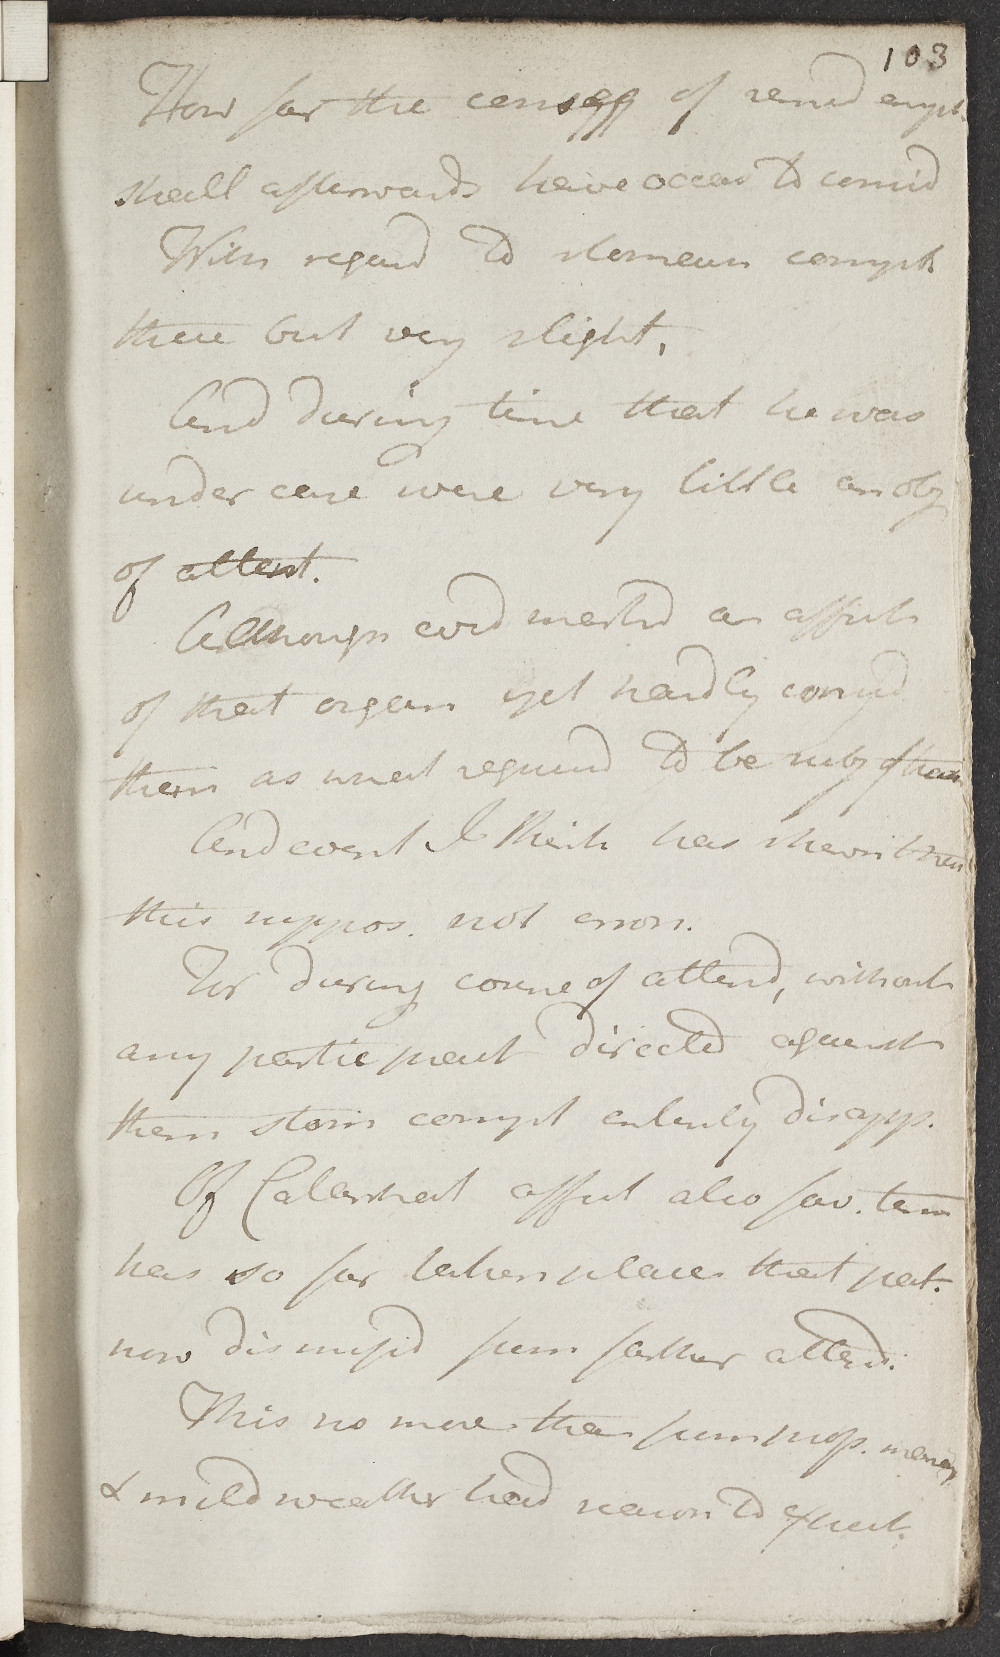 103
How far the conseqq of remed empl.
shall afterwards have occas to consid
With regard to stomach compl.
these but very slight,
And during time that he was
under care were very little an obj
of attent.
Although coud mark'd an affect
of that organ yet hardly consid
them as what requird to be subj of
And event I think has shewn that
this suppos. not erron.
For during course of attend, without
any partic pract directed against
them stom compl entirely disapp.
Of Catarrhal affect also fav. term
has so far taken place that pat.
now dismiss'd from farther attend.
This no more than from prop. manag
& mild weather had reason to expect.